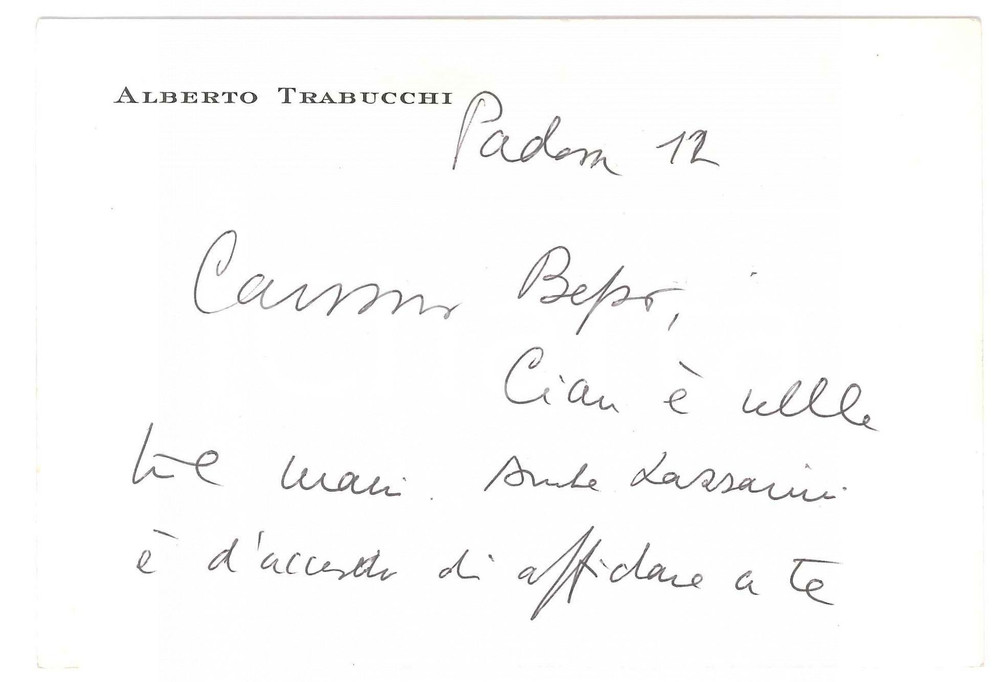 ALBERTO TRABUCCHI
Padova 12
Carissimo Bepi,
Cian è nelle
tue mani. Anche Lazzarini
è d'accordo di affidare a te